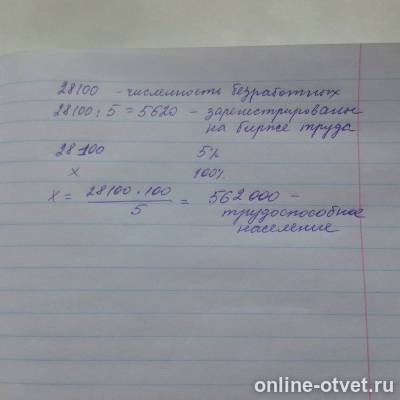 28100 - численность безработных
28100 : 5 = 5620 - зарегистрированы
на бирже труда
28100 5%
х 100%
х = 28100 · 100 / 5 = 562000 -
трудоспособное
население
online-otvet.ru